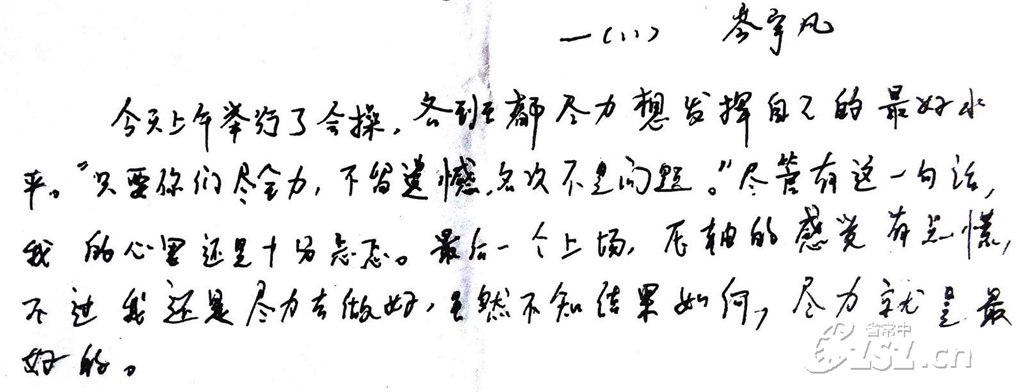 一(1) 李宇凡
今天上午举行了会操，各班都尽力想发挥自己的最好水
平。"只要你们尽全力，不留遗憾，名次不是问题。"尽管有这一句话，
我的心里还是十分忐忑。最后一个上场，压轴的感觉有点慌，
不过我还是尽力去做好，虽然不知结果如何，尽力就是最
好的。
省常中
CZSZ.cn